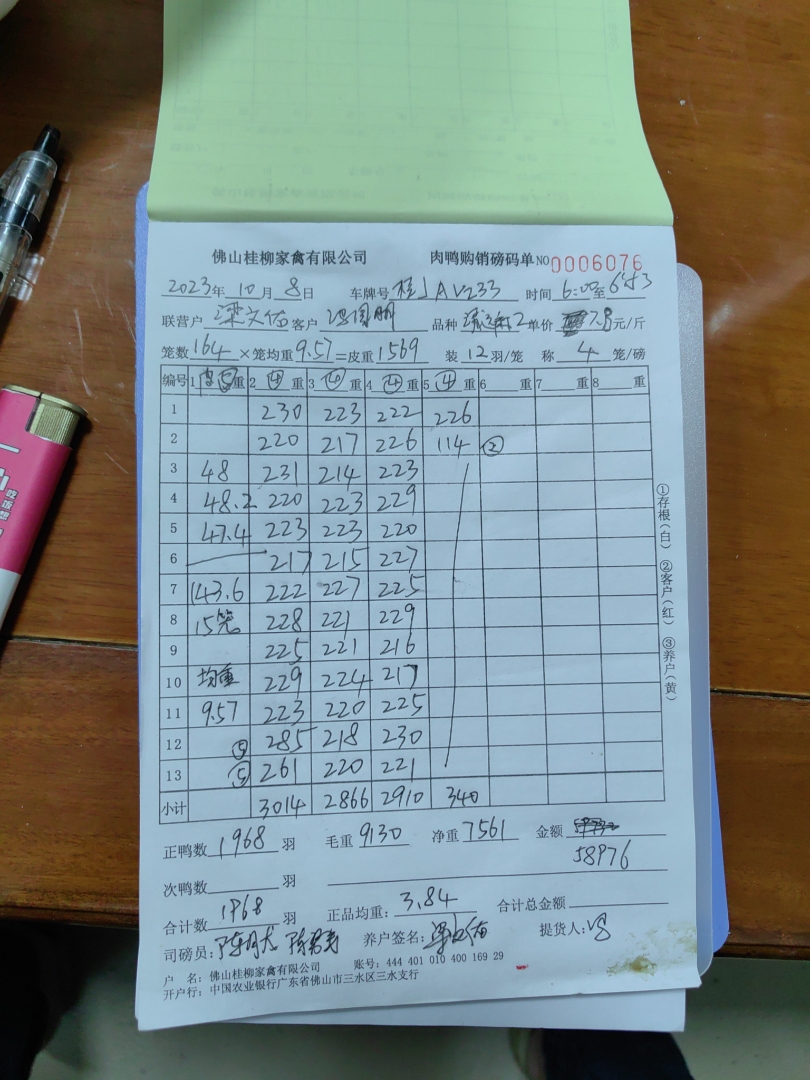 佛山桂柳家禽有限公司 肉鸭购销磅码单 NO 0006076
2023年 10月 8日 车牌号 桂JAV233 时间 6:00至6:53
联营户 梁文佑 客户 品种 单价 7.8元/斤
笼数 164 ×笼均重 9.57 =皮重 1569 装 12 羽/笼 称 4 笼/磅
编号 1 皮⑤重 2 ④ 重 3 ④ 重 4 ④ 重 5 ④ 重 6 重 7 重 8 重
1 230 223 222 226
2 220 217 226 114 ②
3 48 231 214 223
4 48.2 220 223 229
5 47.4 223 223 220
6 217 215 227
7 143.6 222 227 225
8 15笼 228 221 229
9 225 221 216
10 均重 229 224 217
11 9.57 223 220 225
12 ⑤ 285 218 230
13 ⑤ 261 220 221
小计 3014 2866 2910 340
正鸭数 1968 羽 毛重 9130 净重 7561 金额
58976
次鸭数 羽
合计数 1968 羽 正品均重: 3.84 合计总金额
司磅员: 养户签名: 梁文佑 提货人:
户 名: 佛山桂柳家禽有限公司 账号: 444 401 010 400 169 29
开户行: 中国农业银行广东省佛山市三水区三水支行
①存根(白) ②客户(红) ③养户(黄)